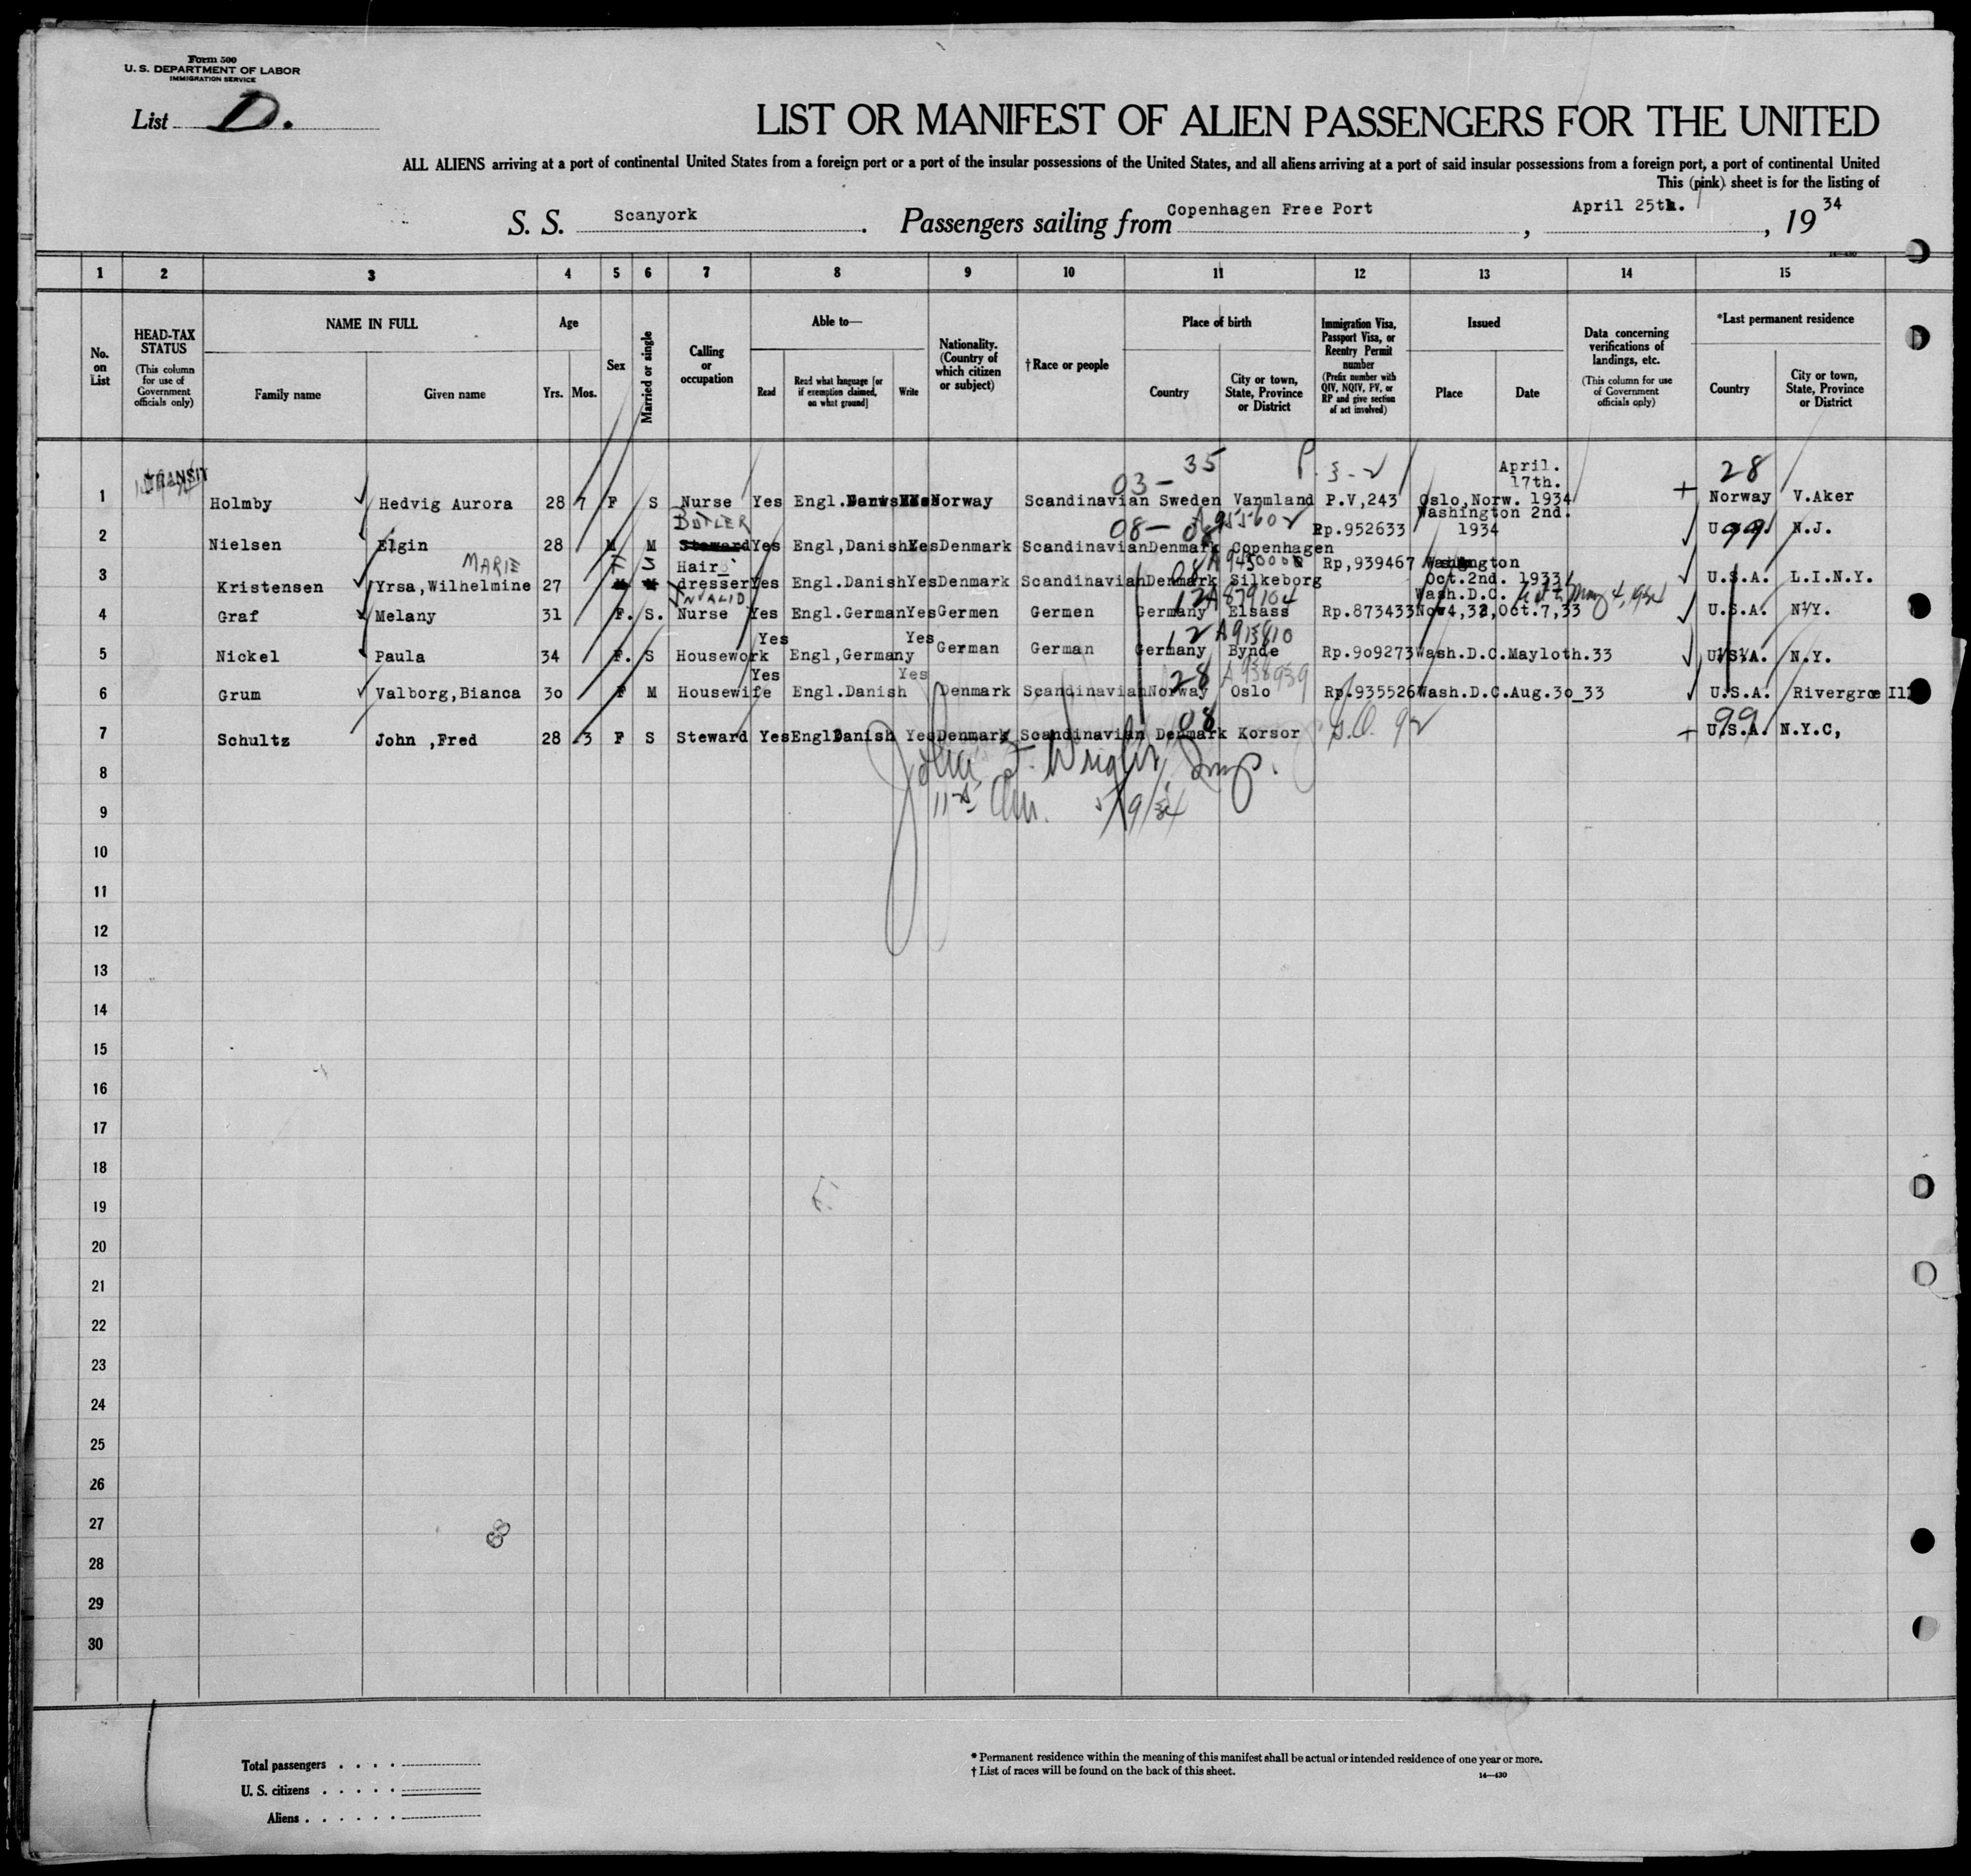 Form 500
U. S. DEPARTMENT OF LABOR
IMMIGRATION SERVICE
List D.
LIST OR MANIFEST OF ALIEN PASSENGERS FOR THE UNITED
ALL ALIENS arriving at a port of continental United States from a foreign port or a port of the insular possessions of the United States, and all aliens arriving at a port of said insular possessions from a foreign port, a port of continental United
This (pink) sheet is for the listing of
S. S. Scanyork. Passengers sailing from Copenhagen Free Port, April 25th., 1934
14—430
1 2 3 4 5 6 7 8 9 10 11 12 13 14 15
No. on List
HEAD-TAX STATUS (This column for use of Government officials only)
NAME IN FULL Family name Given name
Age Yrs. Mos.
Sex
Married or single
Calling or occupation
Able to— Read Read what language [or if exemption claimed, on what ground] Write
Nationality. (Country of which citizen or subject)
† Race or people
Place of birth Country City or town, State, Province or District
Immigration Visa, Passport Visa, or Reentry Permit number (Prefix number with QIV, NQIV, PV, or RP and give section of act involved)
Issued Place Date
Data concerning verifications of landings, etc. (This column for use of Government officials only)
*Last permanent residence Country City or town, State, Province or District
03- 35 P. 3-2 April. 28
TRANSIT 17th.
1 Holmby Hedvig Aurora 28 7 F S Nurse Yes Engl. Norway Scandinavian Sweden Varmland P.V,243 Oslo,Norw. 1934 Norway V.Aker
BUTLER 08- 08 A955602 Washington 2nd.
2 Nielsen Elgin 28 M M Steward Yes Engl,Danish Yes Denmark Scandinavian Denmark Copenhagen Rp.952633 1934 U.S.A. 99 N.J.
MARIE F S Hair_ 08 Rp,939467 Washington
3 Kristensen Yrsa,Wilhelmine 27 dresser Yes Engl.Danish Yes Denmark Scandinavian Denmark Silkeborg Oct.2nd. 1933 U.S.A. L.I.N.Y.
INVALID 12 A879104 Wash.D.C. May 4, 1934
4 Graf Melany 31 F. S. Nurse Yes Engl.German Yes Germen Germen Germany Elsass Rp.873433 Nov4,32,Oct.7,33 U.S.A. N.Y.
Yes Yes 12 A913810
5 Nickel Paula 34 F. S Housework Engl,Germany German German Germany Bynde Rp.909273 Wash.D.C.Mayloth.33 U.S.A. N.Y.
Yes Yes 28 A938939
6 Grum Valborg,Bianca 30 F M Housewife Engl.Danish Denmark Scandinavian Norway Oslo Rp.935526 Wash.D.C.Aug.30_33 U.S.A. Rivergroe Ill
08 99
7 Schultz John ,Fred 28 3 F S Steward Yes Engl Danish Yes Denmark Scandinavian Denmark Korsor S.O. 92 U.S.A. N.Y.C,
John F. Wright, Insp.
8
5/9/34
9
10
11
12
13
14
15
16
17
18
19
20
21
22
23
24
25
26
27
28
29
30
Total passengers
U. S. citizens
Aliens
* Permanent residence within the meaning of this manifest shall be actual or intended residence of one year or more.
† List of races will be found on the back of this sheet.
14—430